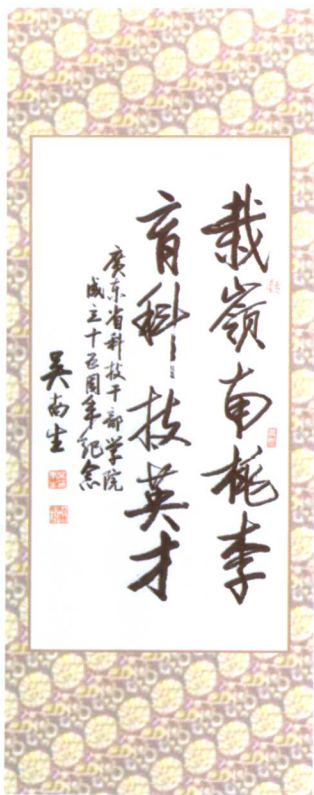 栽嶺南桃李
育科技英才
廣东省科技干部学院
成立十五周年纪念
吴南生